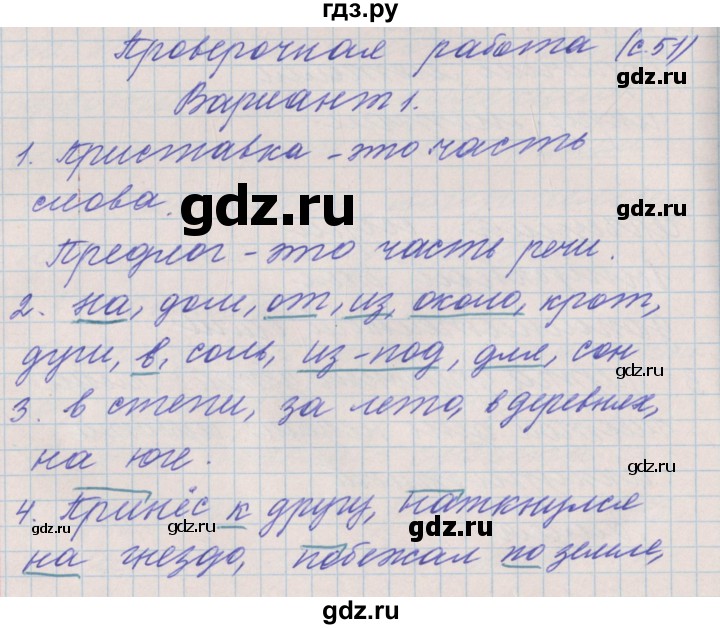 гдз.ру
Проверочная работа (с.51)
Вариант 1.
gdz.ru
1. Приставка - это часть
слова.
gdz.ru
gdz.ru
Предлог - это часть речи.
2. на, дом, от, из, около, крот,
душ, в, соль, из-под, для, сон
gdz.ru
3. в степи, за лето, в деревнях,
на юге.
gdz.ru
4. Принёс к другу, наткнулся
gdz.ru
gdz.ru
на гнездо, побежал по земле,
gdz.ru
gdz.ru